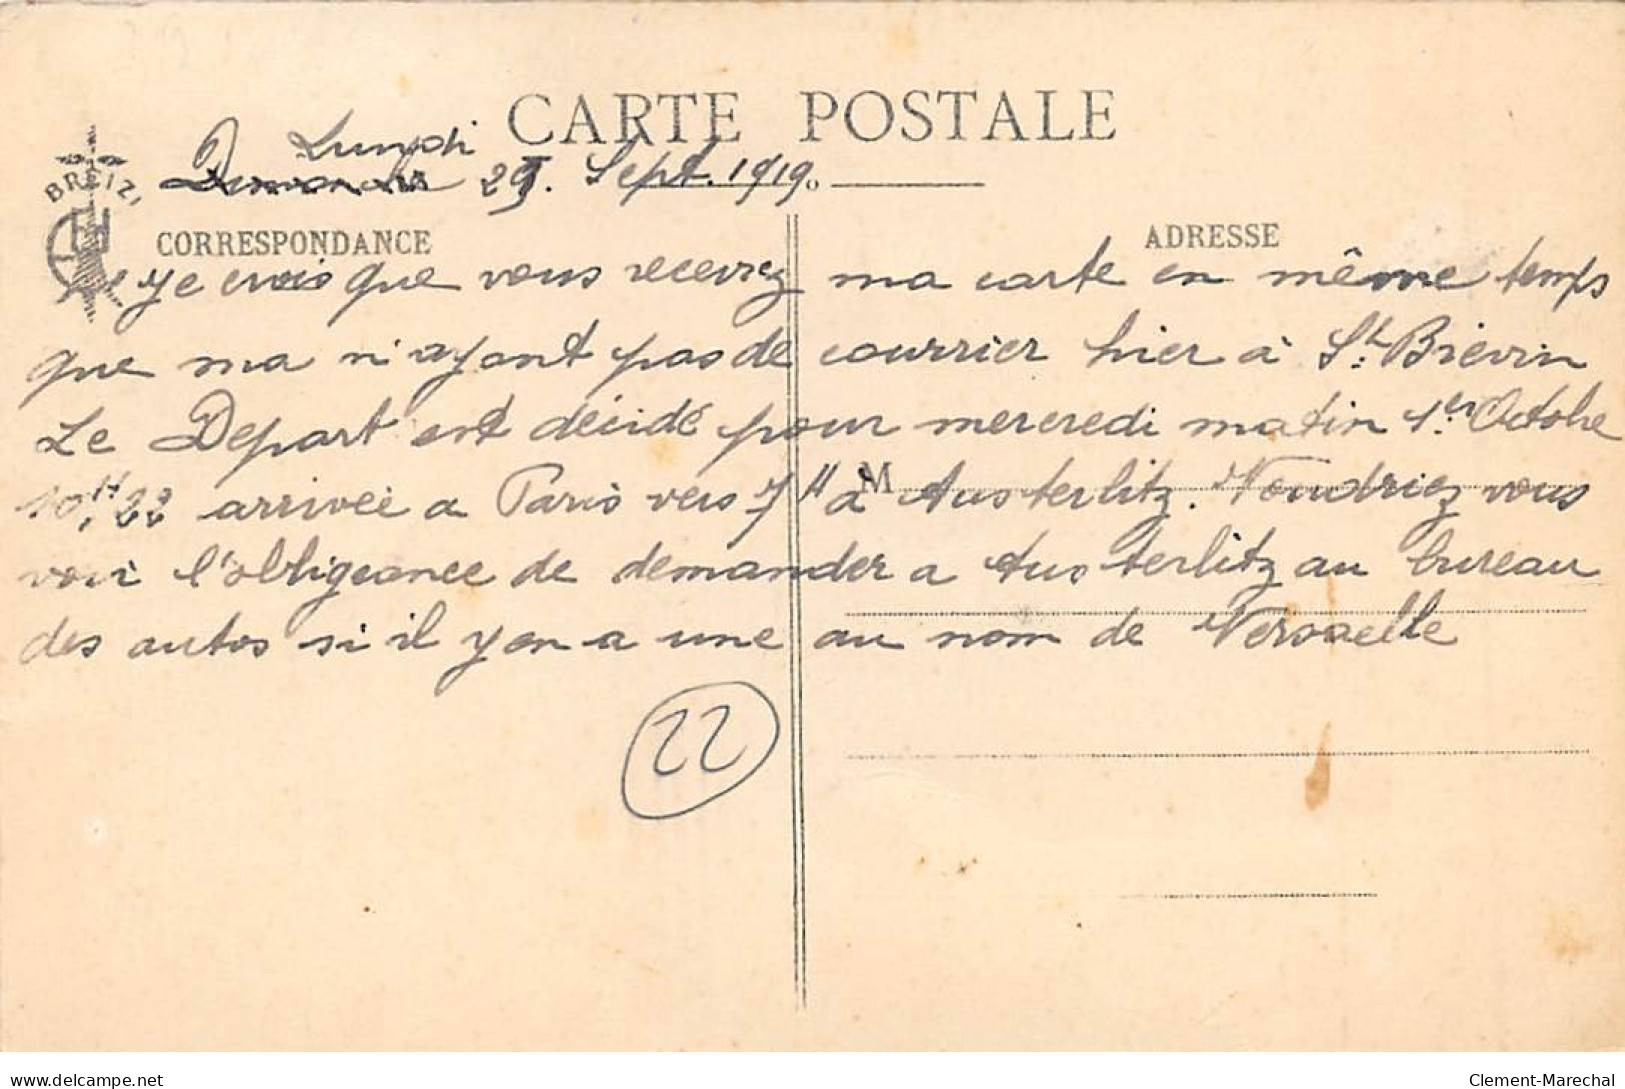 CARTE POSTALE
Lundi
Dimanche 29. Sept. 1919.
BREIZ
CORRESPONDANCE
ADRESSE
Je crois que vous recevrez ma carte en même temps
que ma n'ayant pas de courrier hier à St. Brevin
Le Depart est décidé pour mercredi matin 1er Octobre
10H,22 arrivée a Paris vers 7H à Austerlitz. Voudriez vous
M
voir l'obligeance de demander a Austerlitz au bureau
des autos si il y en a une au nom de
22
delcampe.net
Clement-Marechal